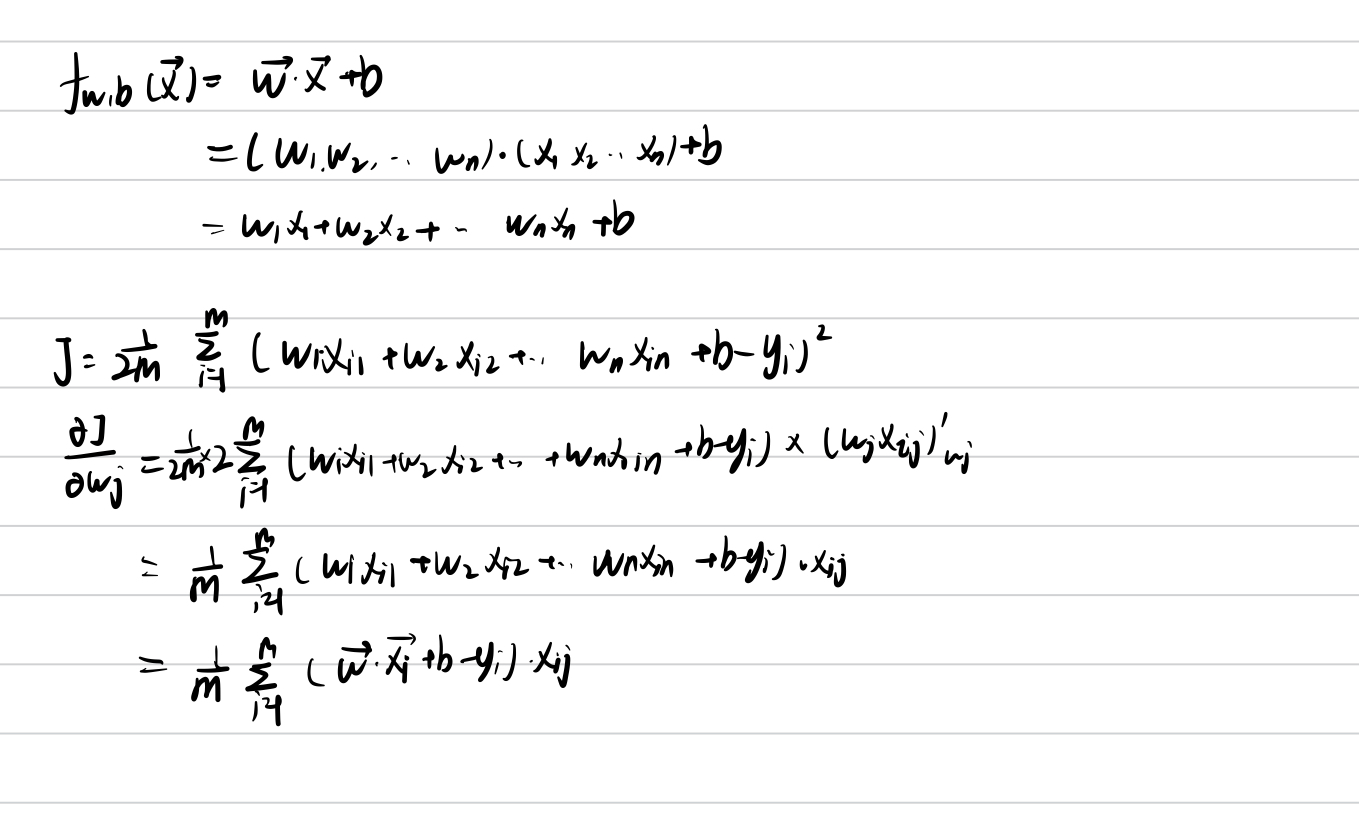 f_{w,b}(\vec{x}) = \vec{w}·\vec{x}+b
=(w_1,w_2,.. w_n)·(x_1 x_2 .. x_n)+b
= w_1x_1+w_2x_2+ .. w_nx_n +b
J = \frac{1}{2m} \sum_{i=1}^{m} (w_1x_{i1} +w_2x_{i2}+.. w_nx_{in} +b-y_i)^2
\frac{∂J}{∂w_j} = \frac{1}{2m}×2\sum_{i=1}^{m} (w_1x_{i1}+w_2x_{i2}+.. +w_nx_{in} +b-y_i) × (w_jx_{ij})'_{w_j}
= \frac{1}{m} \sum_{i=1}^{m} (w_1x_{i1} +w_2x_{i2}+.. w_nx_{in} +b-y_i)·x_{ij}
= \frac{1}{m} \sum_{i=1}^{m} (\vec{w}·\vec{x_i}+b-y_i)·x_{ij}